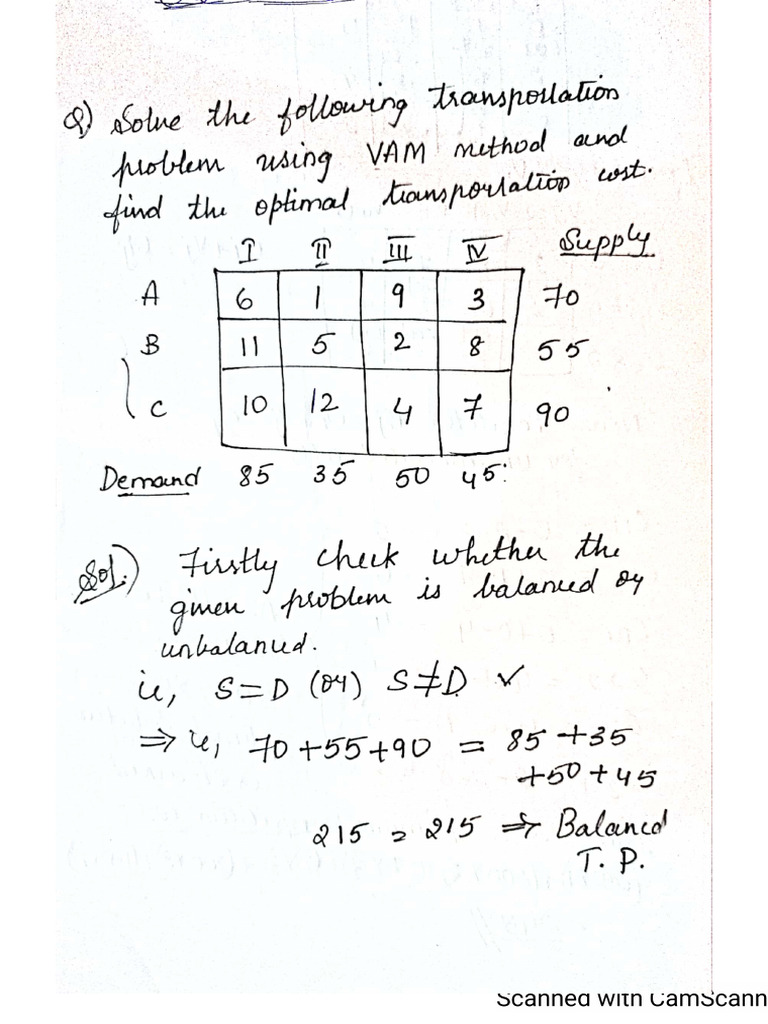 Q) Solve the following transportation
problem using VAM method and
find the optimal transportation cost.
I II III IV Supply
A 6 1 9 3 70
B 11 5 2 8 55
C 10 12 4 7 90
Demand 85 35 50 45
Sol.) Firstly check whether the
given problem is balanced or
unbalanced.
ie, S=D (or) S≠D ✓
⇒ ie, 70+55+90 = 85+35
+50+45
215 = 215 ⇒ Balanced
T. P.
Scanned with CamScann